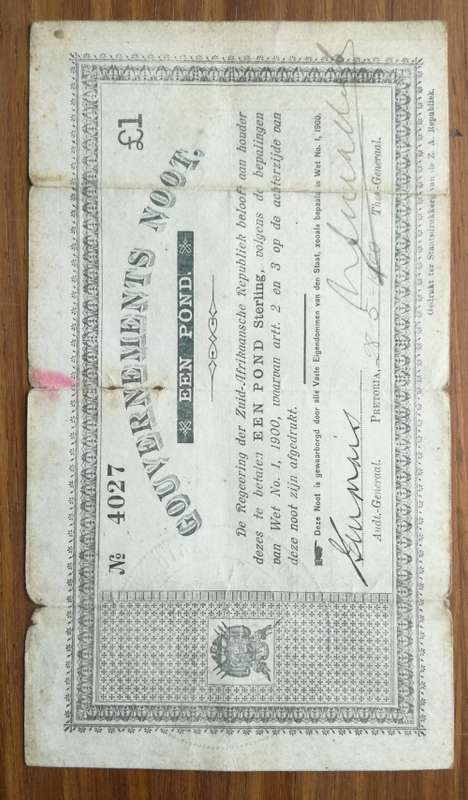 № 4027
£1
GOUVERNEMENTS NOOT.
EEN POND.
De Regeering der Zuid-Afrikaansche Republiek belooft aan houder
dezes te betalen EEN POND Sterling, volgens de bepalingen
van Wet No. 1, 1900, waarvan artt. 2 en 3 op de achterzijde van
deze noot zijn afgedrukt.
Deze Noot is gewaarborgd door alle Vaste Eigendommen van den Staat, zooals bepaald in Wet No. 1, 1900.
Audt.-Generaal. PRETORIA, 28 5 1900 Thes.-Generaal.
Gedrukt ter Staatsdrukkerij van de Z. A. Republiek.